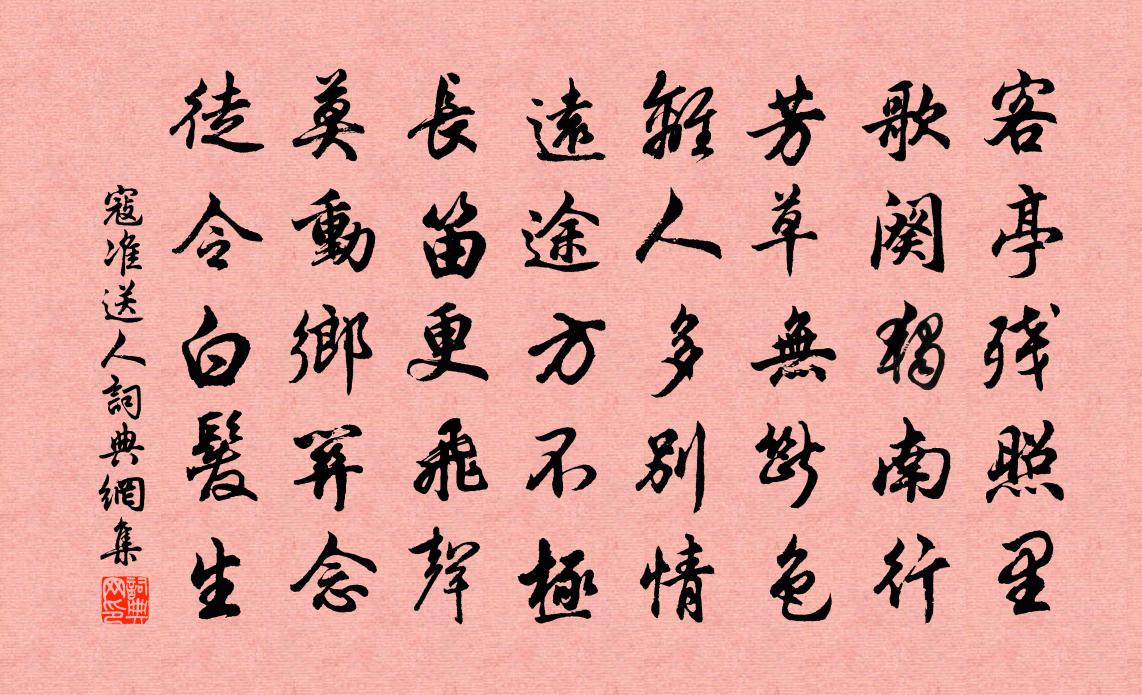 客亭残照里
歌闋獨南行
芳草無斷色
離人多別情
遠途方不極
長笛更飛聲
莫動鄉關念
徒令白髮生
寇准送人詞典網集
詞典网印